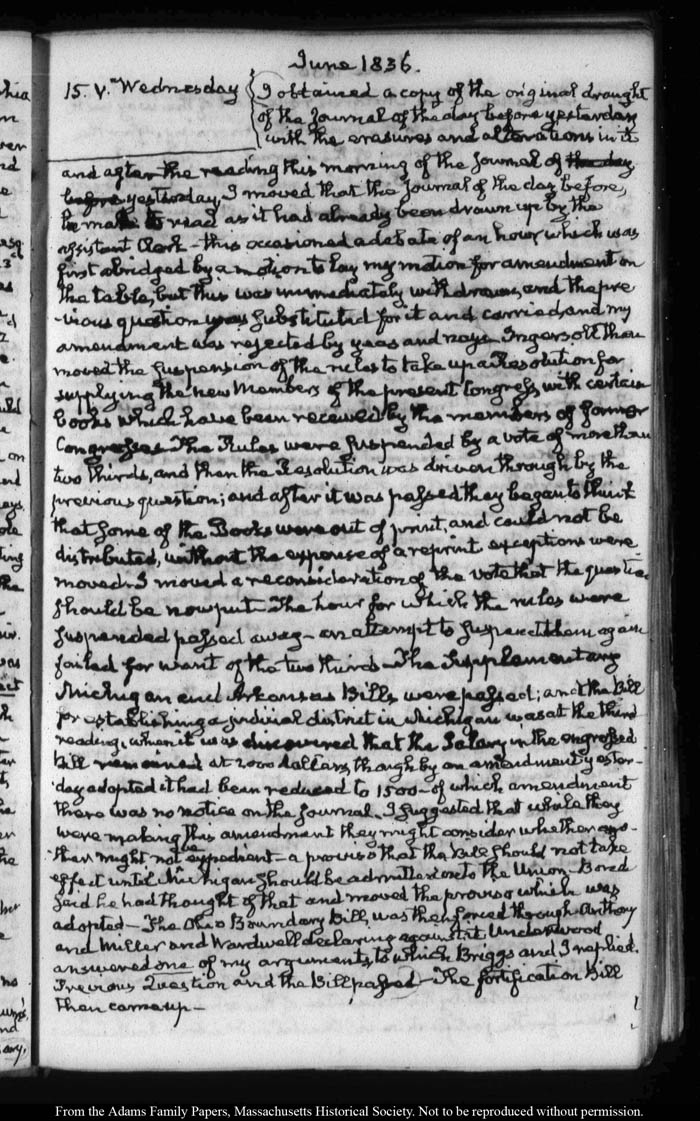 June 1836.
15. V. Wednesday
I obtained a copy of the original draught
of the Journal of the day before yesterday
with the erasures and alterations in it
and after the reading this morning of the Journal of the day
before yesterday, I moved that the Journal of the day before,
be made to read as it had already been drawn up by the
assistant Clerk - this occasioned a debate of an hour which was
first abridged by a motion to lay my motion for amendment on
the table, but this was immediately withdrawn, and the pre
-vious question was substituted for it and carried, and my
amendment was rejected by yeas and nays. Ingersoll then
moved the suspension of the rules to take up a Resolution for
supplying the new Members of the present Congress, with certain
books which have been received by the members of former
Congresses. The Rules were suspended by a vote of more than
two thirds, and then the Resolution was driven through by the
previous question; and after it was passed they began to think
that some of the Books were out of print, and could not be
distributed, without the expense of a reprint. exceptions were
moved. I moved a reconsideration of the vote that the question
should be now put - The hour for which the rules were
suspended passed away - an attempt to suspend them again
failed for want of the two thirds - The Supplementary
Michigan and Arkansas Bills were passed; and the Bill
for establishing a judicial district in Michigan was at the third
reading, when it was discovered that the Salary in the engrossed
bill remained at 2000 dollars, though by an amendment yester-
day adopted it had been reduced to 1500 - of which amendment
there was no notice on the Journal. I suggested that while they
were making this amendment they might consider whether ano-
ther might not be expedient - a proviso that the Bill should not take
effect until Michigan should be admitted into the Union. Bond
said he had thought of that and moved the proviso which was
adopted - The Ohio Boundary Bill, was then forced through. Anthony
and Miller and Wardwell declaring against it. Underwood
answered one of my arguments, to which Briggs and I replied.
Previous Question and the Bill passed - The fortification Bill
then came up -
From the Adams Family Papers, Massachusetts Historical Society. Not to be reproduced without permission.